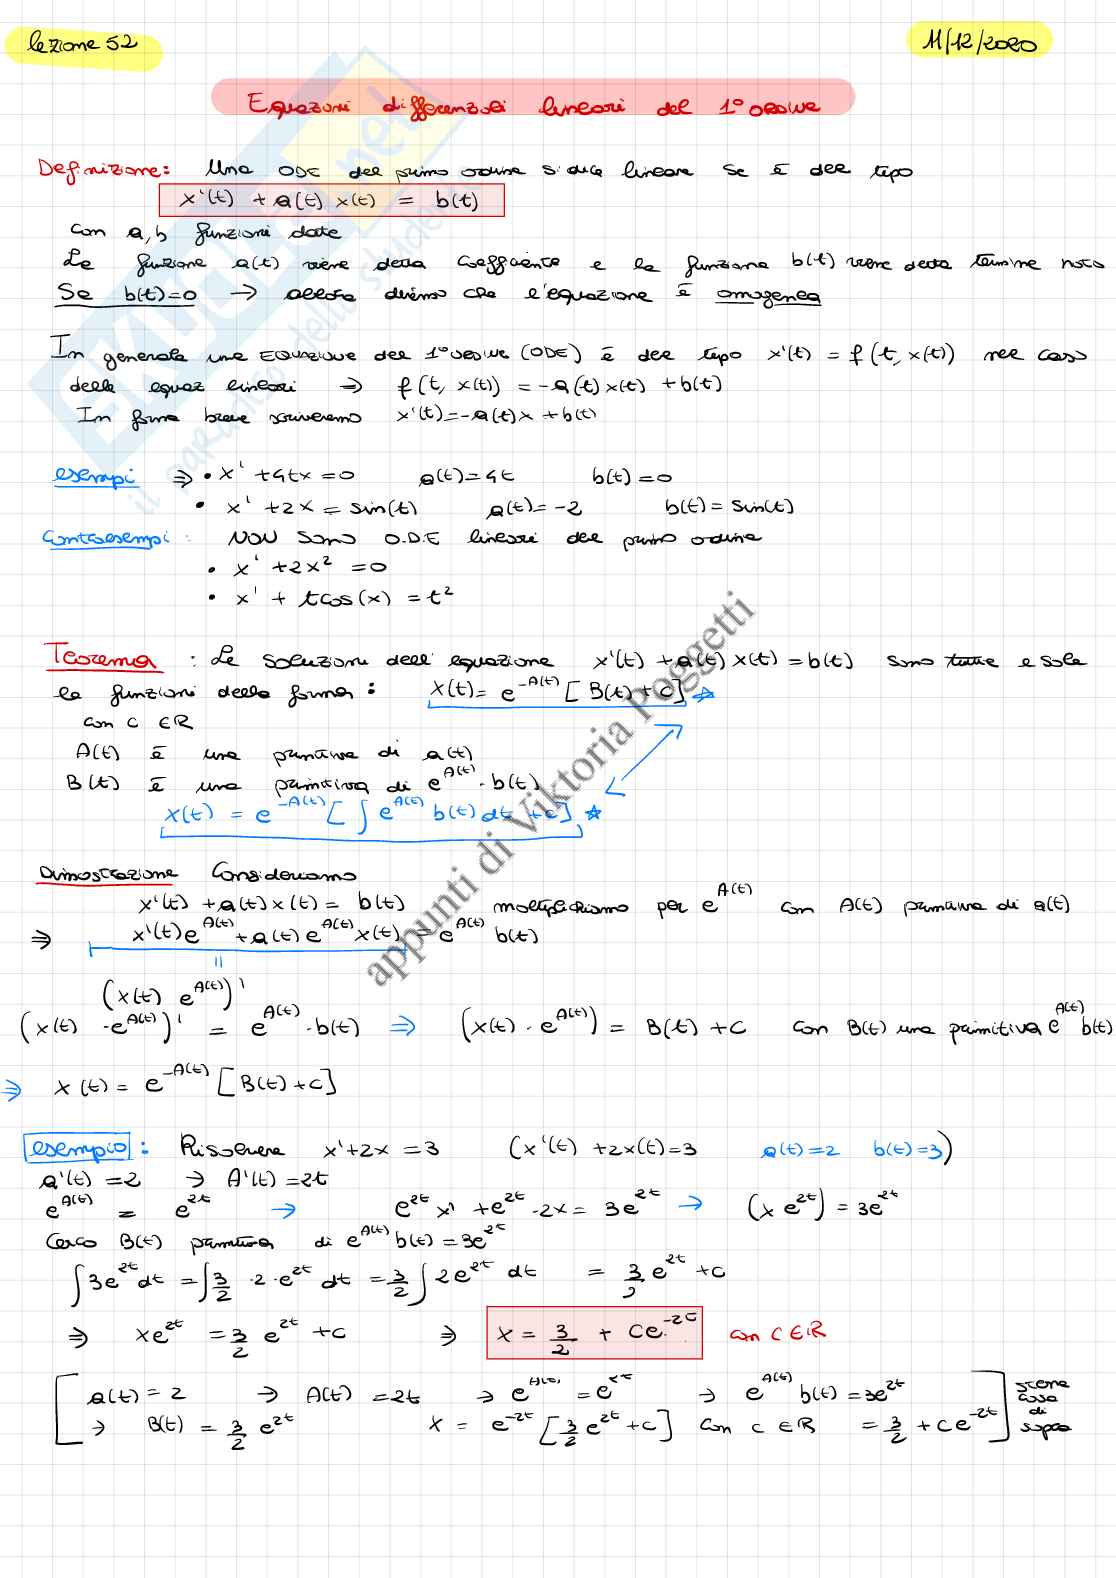 lezione 52
11/12/2020
Equazioni differenziali lineari del 1° ordine
Definizione: Una ODE del primo ordine si dice lineare se è del tipo
x'(t) + a(t) x(t) = b(t)
con a,b funzioni date
La funzione a(t) viene detta coefficiente e la funzione b(t) viene detta termine noto
Se b(t)=0 → allora diremo che l'equazione è omogenea
In generale una EQUAZIONE del 1° ordine (ODE) è del tipo x'(t) = f(t, x(t)) nel caso
delle equaz lineari ⇒ f(t, x(t)) = -a(t)x(t) + b(t)
In forma breve scriveremo x'(t)=-a(t)x + b(t)
esempi ⇒ • x' + 4tx = 0 a(t)=4t b(t)=0
• x' + 2x = sin(t) a(t)=-2 b(t)=sin(t)
Controesempi: NON SONO O.D.E lineari del primo ordine
• x' + 2x² = 0
• x' + tcos(x) = t²
Teorema: Le soluzioni dell'equazione x'(t) + a(t) x(t) = b(t) sono tutte e sole
le funzioni della forma: x(t) = e^{-A(t)} [B(t) + c] ☆
con c ∈ R
A(t) è una primitiva di a(t)
B(t) è una primitiva di e^{A(t)} · b(t)
x(t) = e^{-A(t)} [∫ e^{A(t)} b(t) dt + c] ☆
Dimostrazione Consideriamo
x'(t) + a(t)x(t) = b(t) moltiplichiamo per e^{A(t)} con A(t) primitiva di a(t)
⇒ x'(t)e^{A(t)} + a(t)e^{A(t)}x(t) = e^{A(t)} b(t)
=
(x(t) e^{A(t)})'
(x(t) · e^{A(t)})' = e^{A(t)} · b(t) ⇒ (x(t) · e^{A(t)}) = B(t) + c con B(t) una primitiva e^{A(t)} b(t)
⇒ x(t) = e^{-A(t)} [B(t) + c]
esempio: Risolvere x' + 2x = 3 (x'(t) + 2x(t) = 3 a(t)=2 b(t)=3)
a'(t) = 2 → A'(t) = 2t
e^{A(t)} = e^{2t} → e^{2t} x' + e^{2t} · 2x = 3e^{2t} → (x e^{2t}) = 3e^{2t}
Cerco B(t) primitiva di e^{A(t)} b(t) = 3e^{2t}
∫ 3e^{2t} dt = ∫ 3/2 · 2 · e^{2t} dt = 3/2 ∫ 2e^{2t} dt = 3/2 e^{2t} + c
⇒ xe^{2t} = 3/2 e^{2t} + c ⇒ x = 3/2 + ce^{-2t} con c ∈ R
[a(t) = 2 → A(t) = 2t → e^{A(t)} = e^{2t} → e^{A(t)} b(t) = 3e^{2t}
→ B(t) = 3/2 e^{2t} x = e^{-2t} [3/2 e^{2t} + c] con c ∈ R = 3/2 + ce^{-2t}]
cosa
di
sopra
appunti di Viktoria Poggetti